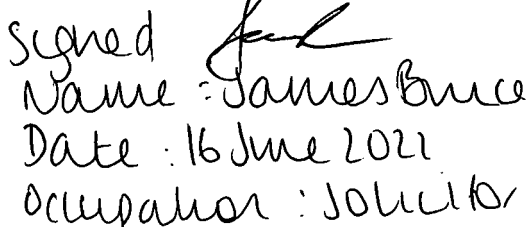 Signed
Name : James Bruce
Date : 16 June 2021
Occupation : Solicitor